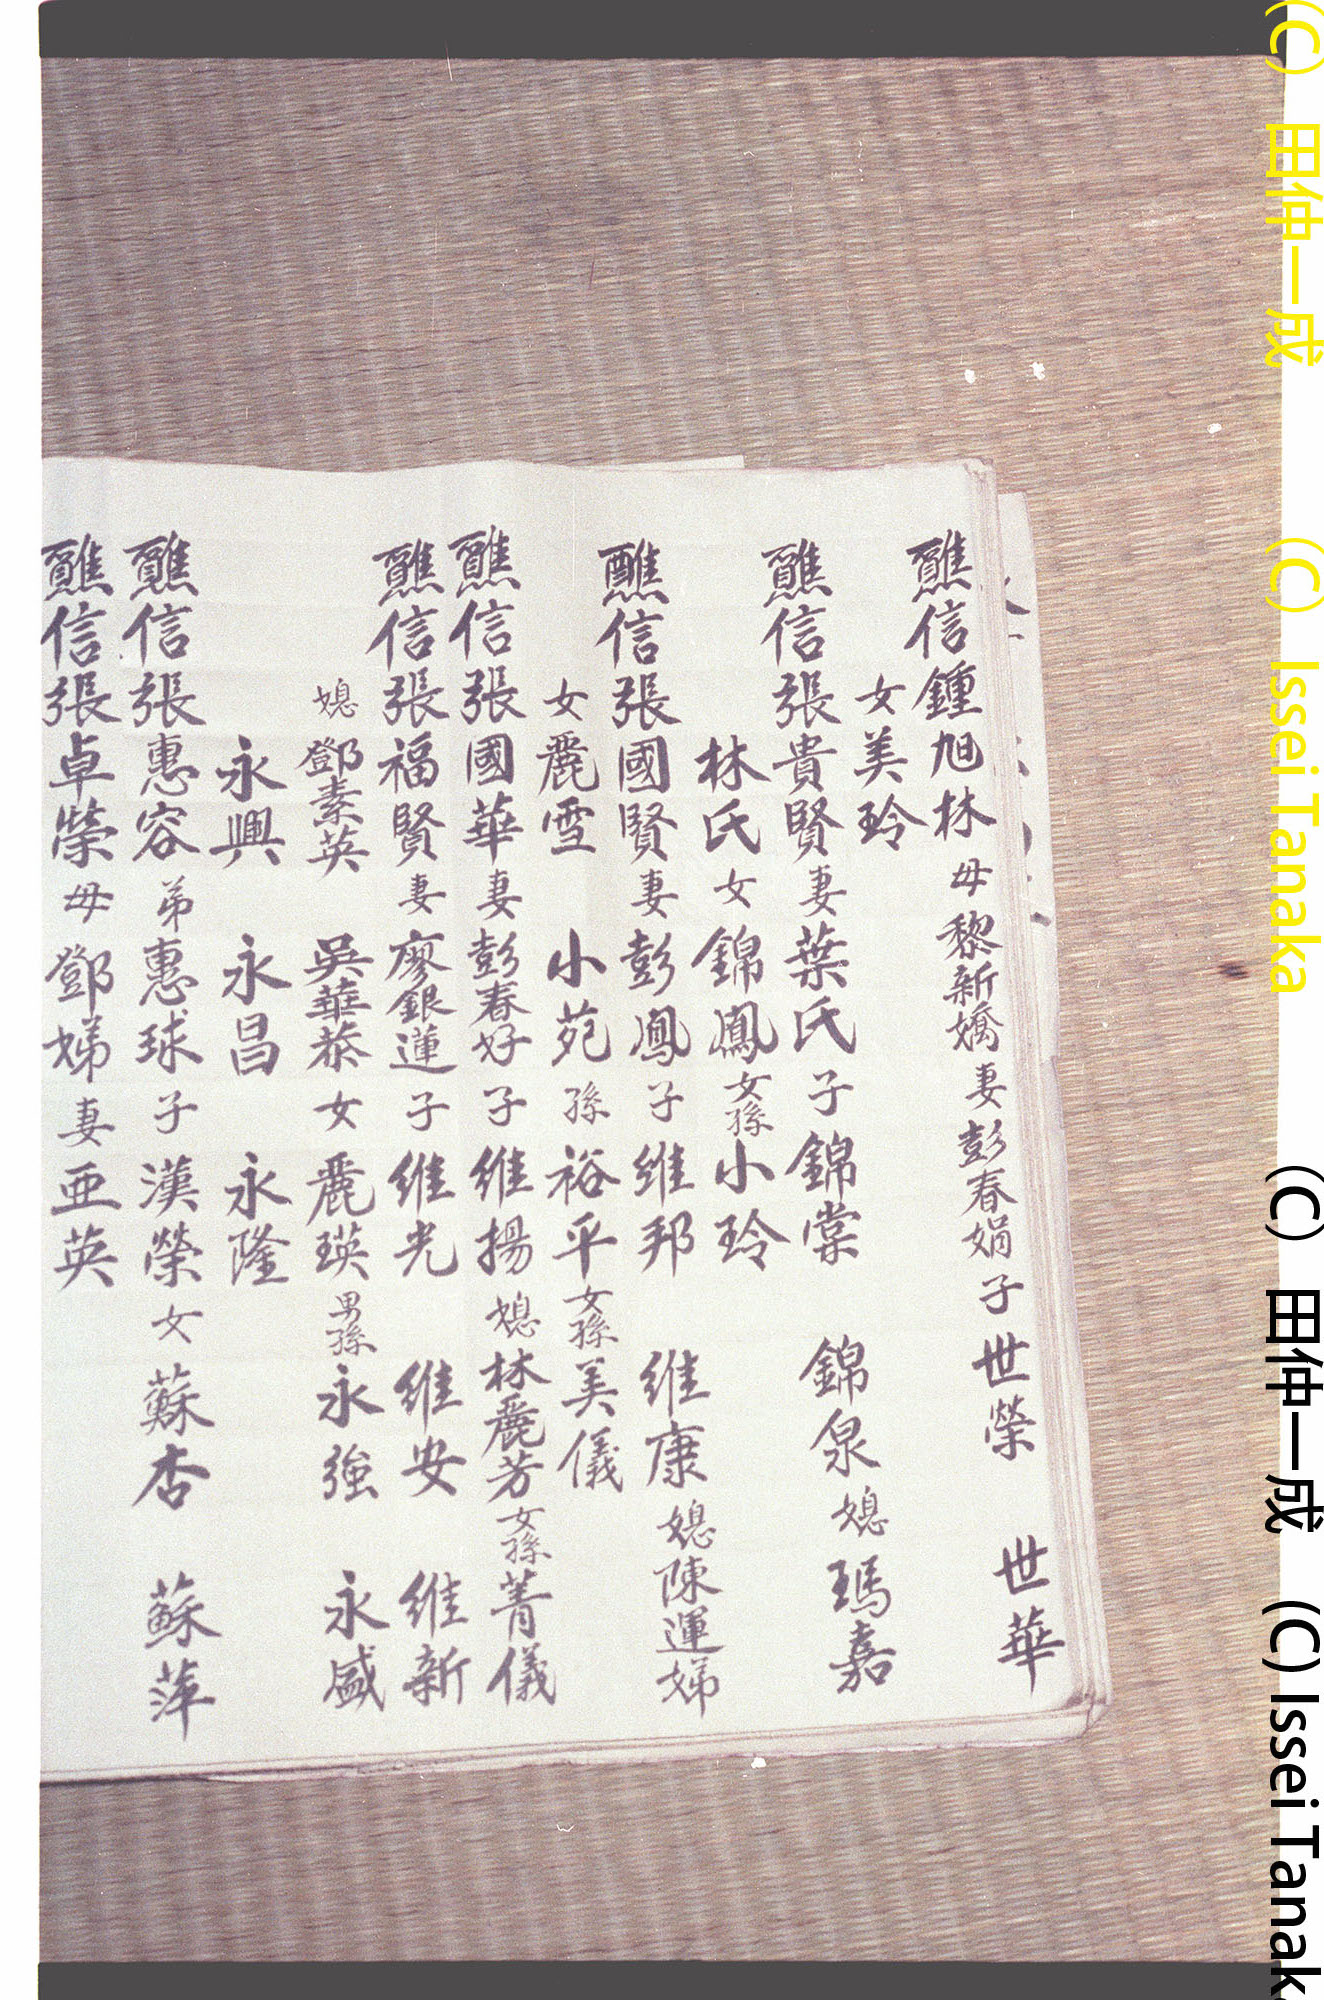 醮信鍾旭林母黎新嬌妻彭春娟子世榮 世華
女美玲
醮信張貴賢妻葉氏子錦棠 錦泉媳瑪嘉
林氏女錦鳳女孫小玲
醮信張國賢妻彭鳳子維邦 維康媳陳運娣
女麗雪 小苑孫裕平女孫美儀
醮信張國華妻彭春好子維揚媳林麗芳女孫菁儀
醮信張福賢妻廖銀蓮子維光 維安 維新
媳鄧素英 吳華恭女麗瑛男孫永強 永盛
永興 永昌 永隆
醮信張惠容弟惠球子漢榮女蘇杏 蘇萍
醮信張卓榮母鄧娣妻亜英
(C) 田仲一成 (C) Issei Tanaka
(C) 田仲一成 (C) Issei Tanak